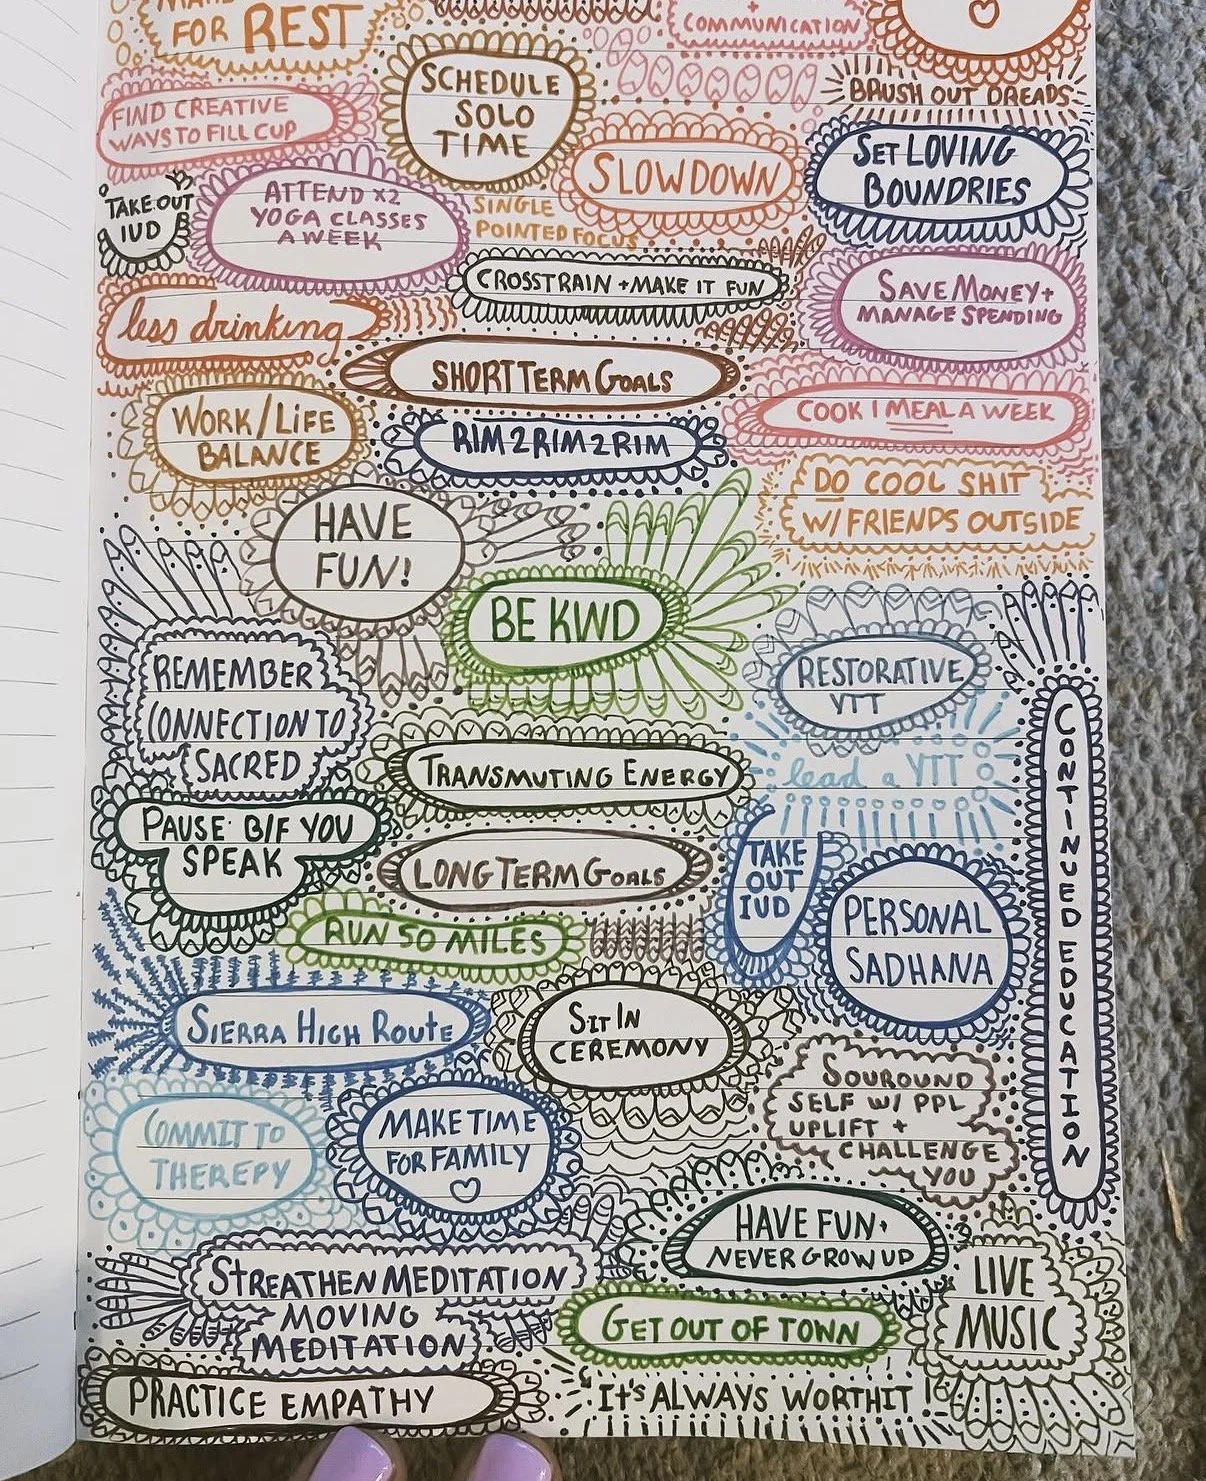 FOR REST
+
COMMUNICATION
SCHEDULE
SOLO
TIME
BRUSH OUT DREADS
FIND CREATIVE
WAYS TO FILL CUP
SLOW DOWN
SET LOVING
BOUNDRIES
TAKE OUT
IUD
ATTEND X2
YOGA CLASSES
A WEEK
SINGLE
POINTED FOCUS
CROSSTRAIN + MAKE IT FUN
SAVE MONEY +
MANAGE SPENDING
less drinking
SHORT TERM GOALS
WORK/LIFE
BALANCE
RIM 2 RIM 2 RIM
COOK 1 MEAL A WEEK
DO COOL SHIT
W/ FRIENDS OUTSIDE
HAVE
FUN!
BE KIND
REMEMBER
CONNECTION TO
SACRED
RESTORATIVE
YTT
TRANSMUTING ENERGY
lead a YTT
CONTINUED EDUCATION
PAUSE B/F YOU
SPEAK
LONG TERM GOALS
TAKE
OUT
IUD
PERSONAL
SADHANA
RUN 50 MILES
SIERRA HIGH ROUTE
SIT IN
CEREMONY
SOUROUND
SELF W/ PPL
UPLIFT +
CHALLENGE
YOU
COMMIT TO
THEREPY
MAKE TIME
FOR FAMILY
HAVE FUN.
NEVER GROW UP
STREATHEN MEDITATION
MOVING
MEDITATION
GET OUT OF TOWN
LIVE
MUSIC
PRACTICE EMPATHY
IT'S ALWAYS WORTH IT!